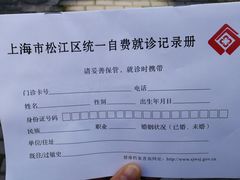 上海市松江区统一自费就诊记录册
请妥善保管，就诊时携带
门诊卡号 电话
姓名 性别 出生年月日
身份证号码
民族 职业 婚姻状况（已婚、未婚）
单位/住址
既往/过敏史